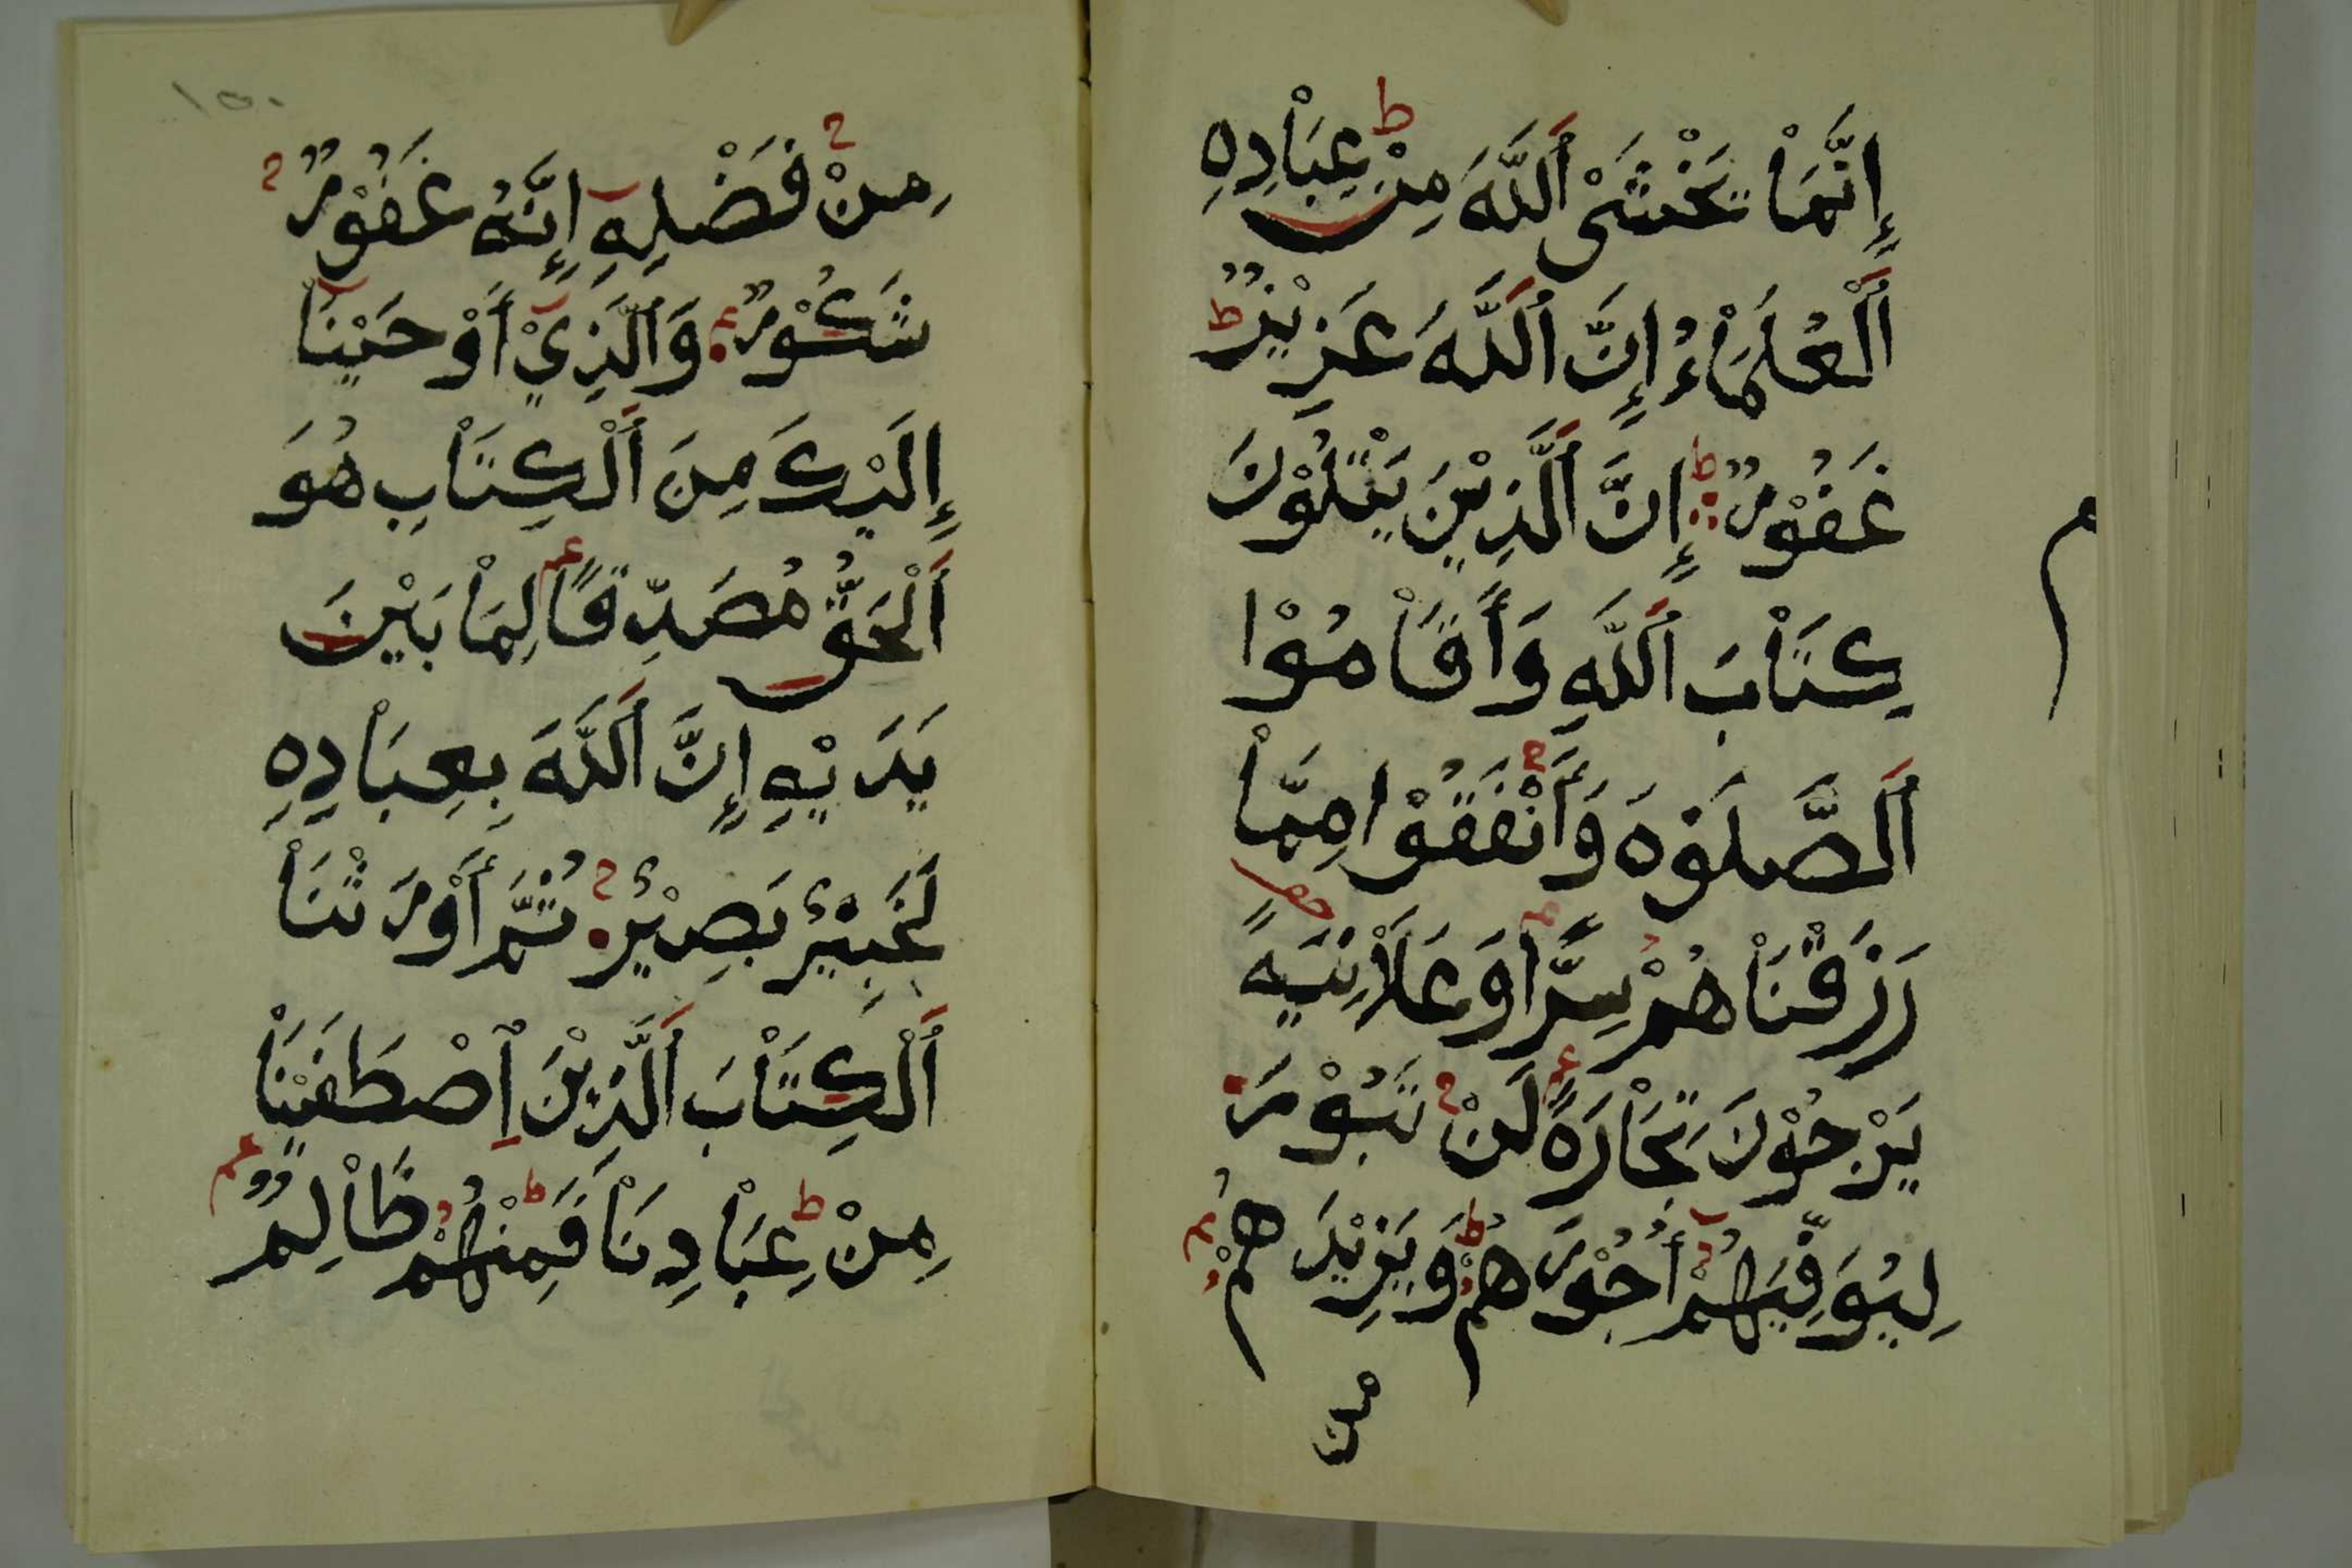 إِنَّمَاْ يَخْشَىْ اَللَّهَ مِنْ عِبَاْدِهِ
اَلْعُلَمَاْءُ إِنَّ اَللَّهَ عَزِيْزٌ
غَفُوْرٌ إِنَّ اَلَّذِيْنَ يَتْلُوْنَ
كِتَاْبَ اَللَّهِ وَأَقَاْمُوْا
اَلصَّلَوٰهَ وَأَنْفَقُوْا مِمَّاْ
رَزَقْنَاْهُمْ سِرًّا وَعَلَاْنِيَةً
يَرْجُوْنَ تِجَاْرَةً لَنْ تَبُوْرَ
لِيُوَفِّيَهُمْ أُجُوْرَهُمْ وَيَزِيْدَهُمْ
مِنْ
١٥٠
مِنْ فَضْلِهِ إِنَّهُ غَفُوْرٌ
شَكُوْرٌ وَاَلَّذِيْ أَوْحَيْنَاْ
إِلَيْكَ مِنَ اَلْكِتَاْبِ هُوَ
اَلْحَقُّ مُصَدِّقًا لِمَاْ بَيْنَ
يَدَيْهِ إِنَّ اَللَّهَ بِعِبَاْدِهِ
لَخَبِيْرٌ بَصِيْرٌ ثُمَّ أَوْرَثْنَاْ
اَلْكِتَاْبَ اَلَّذِيْنَ اِصْطَفَيْنَاْ
مِنْ عِبَاْدِنَاْ فَمِنْهُمْ ظَاْلِمٌ